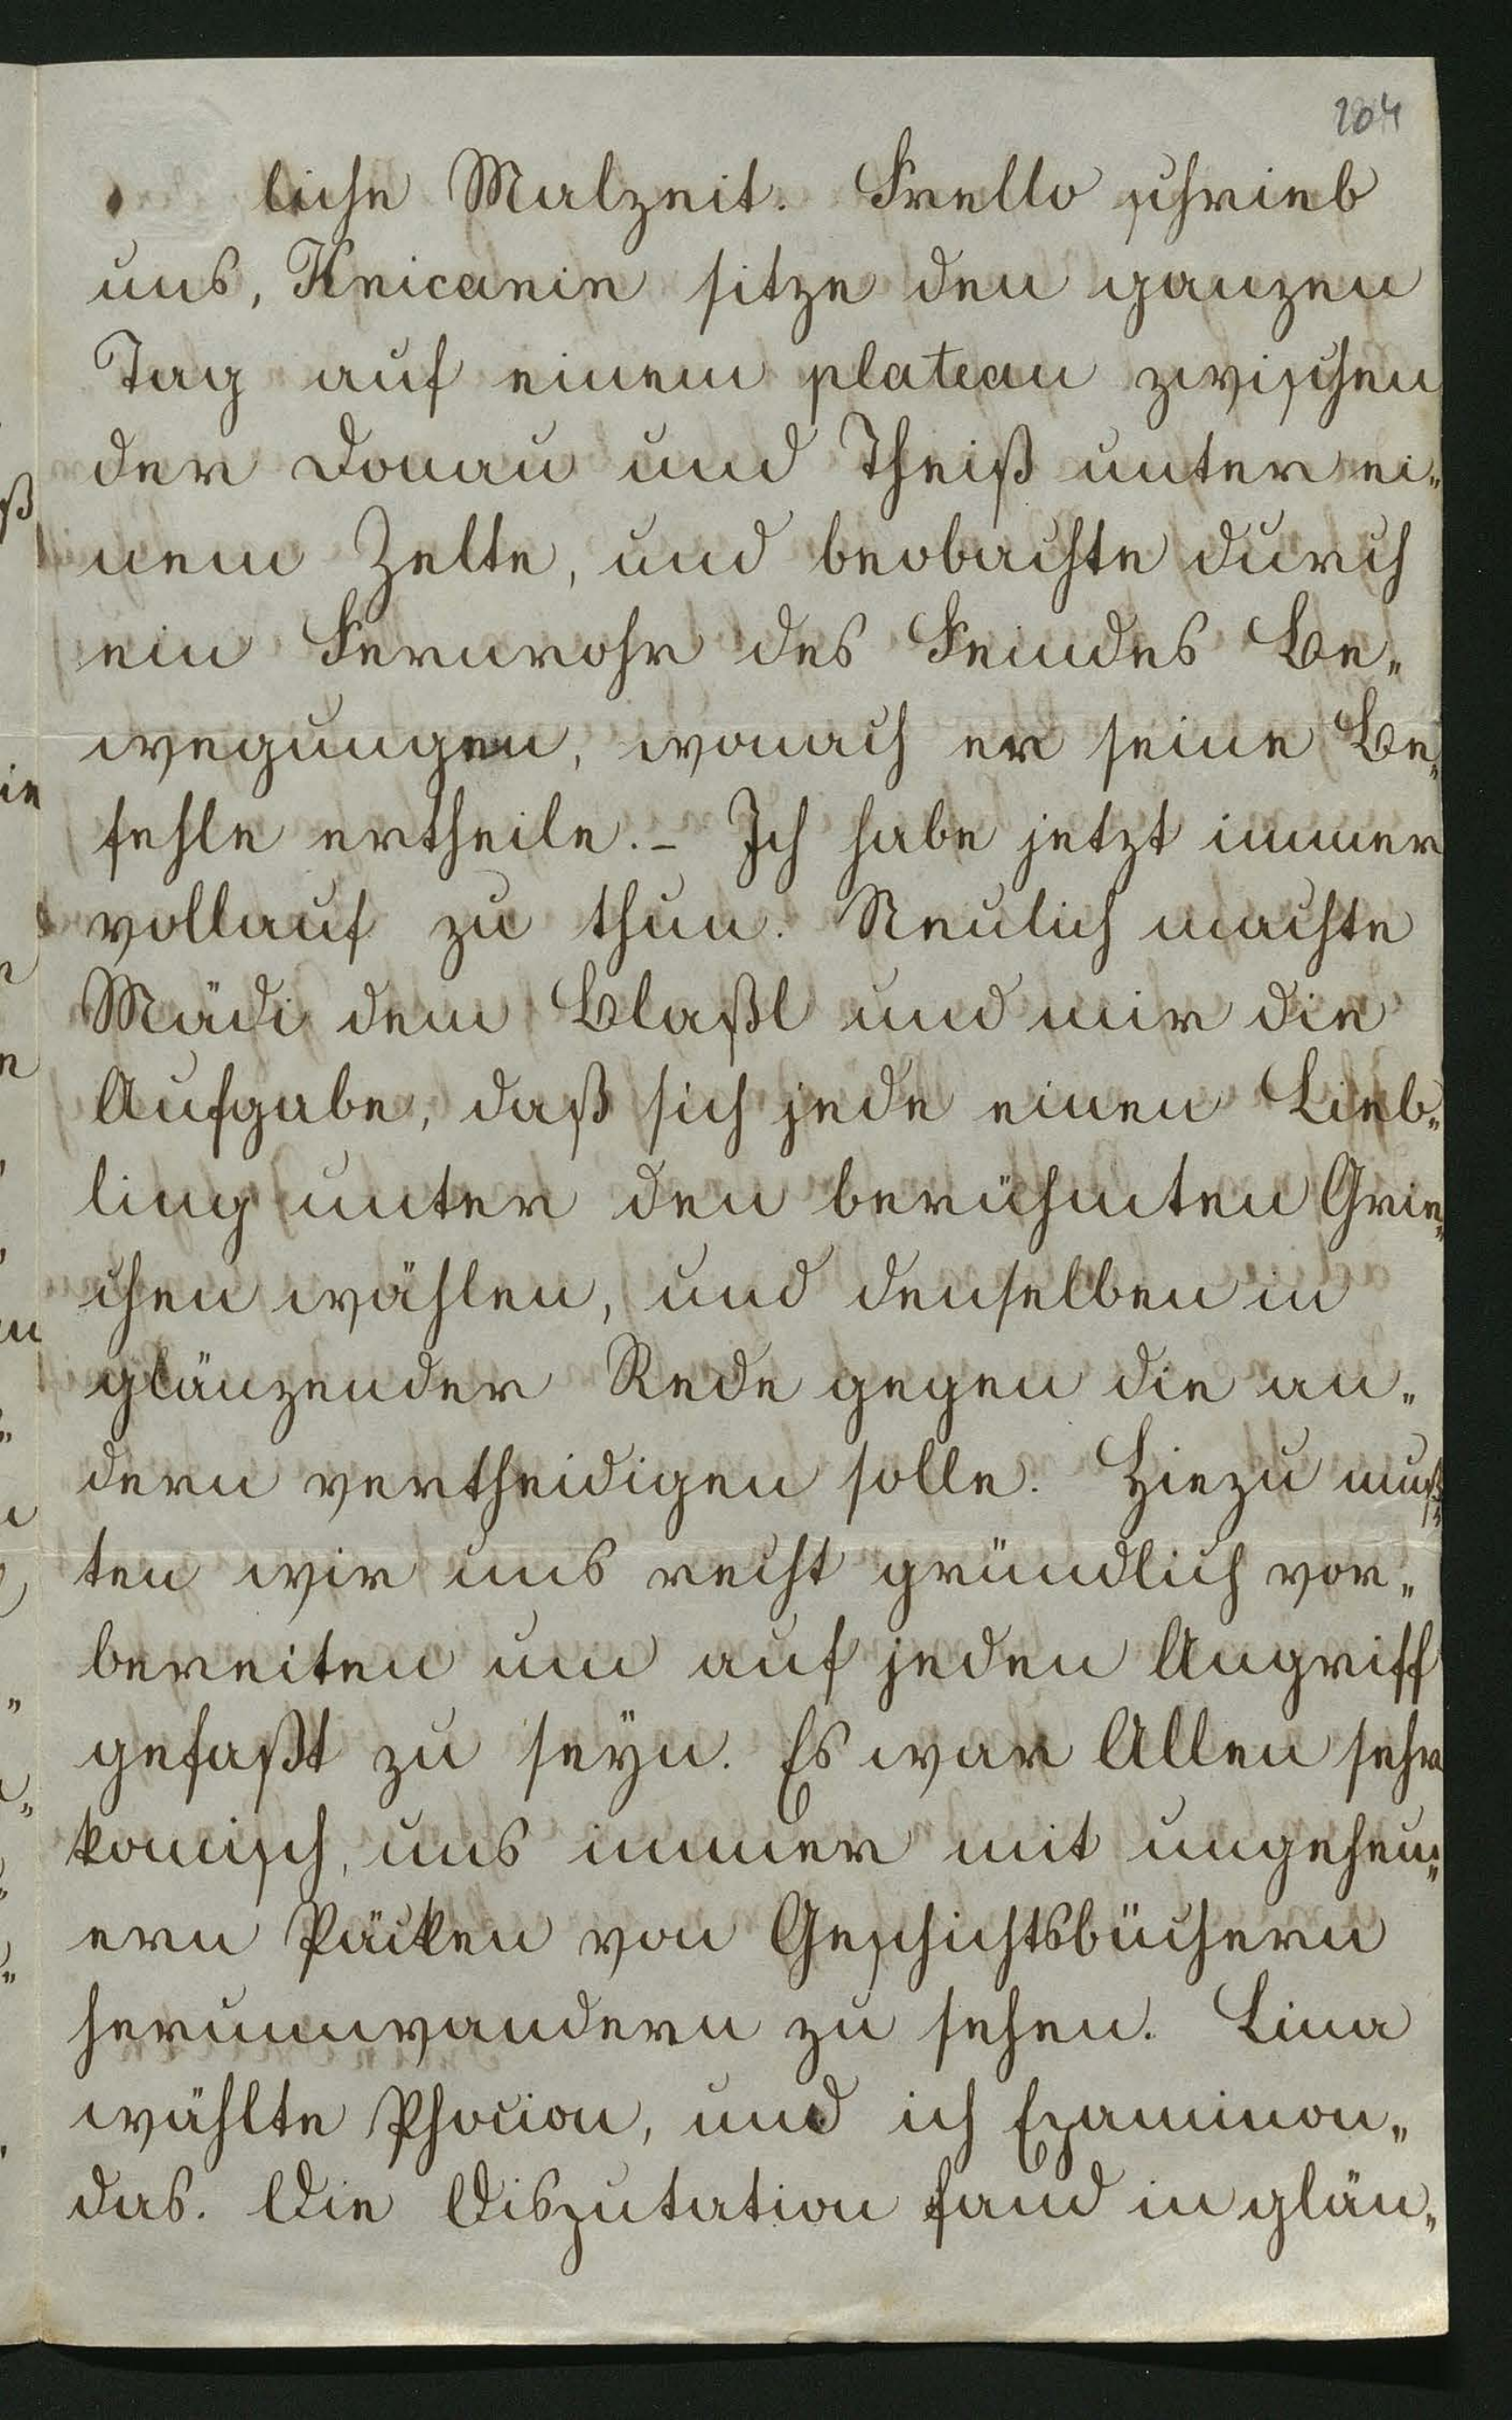 204
liche Malzeit. Frello schrieb
uns, Knicanin sitze den ganzen
Tag auf einem plateau zwischen
der Donau und Theiß unter ei„
nem Zelte, und beobachte durch
ein Fernrohr des Feindes Be„
wegungen, wonach er seine Be„
fehle ertheile. – Ich habe jetzt immer
vollauf zu thun. Neulich machte
Mädi dem Blaßl und mir die
Aufgabe, daß sich jede einen Lieb„
ling unter den berühmten Grie„
chen wählen, und denselben in
glänzender Rede gegen die an„
dern vertheidigen solle. Hiezu muß„
ten wir uns recht gründlich vor„
bereiten um auf jeden Angriff
gefaßt zu seyn. Es war Allen sehr
komisch, uns immer mit ungeheu„
ern Päcken von Geschichtsbüchern
herumwandern zu sehen. Lina
wählte Phocion, und ich Epaminon„
das. Die Disputation fand in glän„